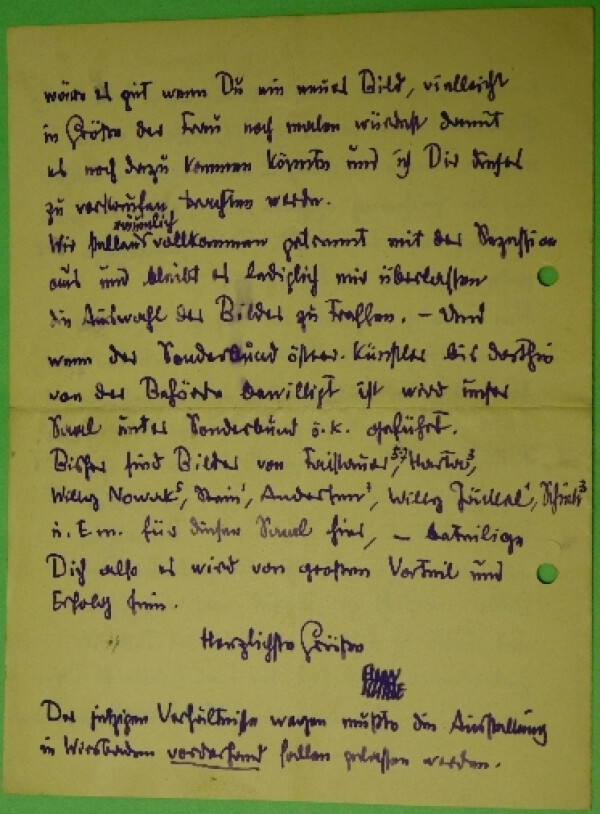 wäre es gut wenn Du ein neues Bild, vielleicht
in Größe der Frau noch malen würdest damit
es noch dazu kommen könnte und ich Dir dieses
zu verkaufen trachten werde.
nämlich
Wir stellen vollkommen getrennt mit der Sezession
aus und bleibt es lediglich mir überlassen
die Auswahl der Bilder zu treffen. – Und
wenn der Sonderbund österr. Künstler bis dorthin
von der Behörde bewilligt ist wird unser
Saal unter Sonderbund ö. K. geführt.
Bisher sind Bilder von Faistauer, Harta³,
Willy Nowak⁵, Andersen, Willy Jäckel,
u. E. m. für diesen Saal hier, – beteilige
Dich also es wird von großem Vorteil und
Erfolg sein.
Herzlichste Grüße
Der jetzigen Verhältnisse wegen mußte die Ausstellung
in Wiesbaden vorderhand fallen gelassen werden.